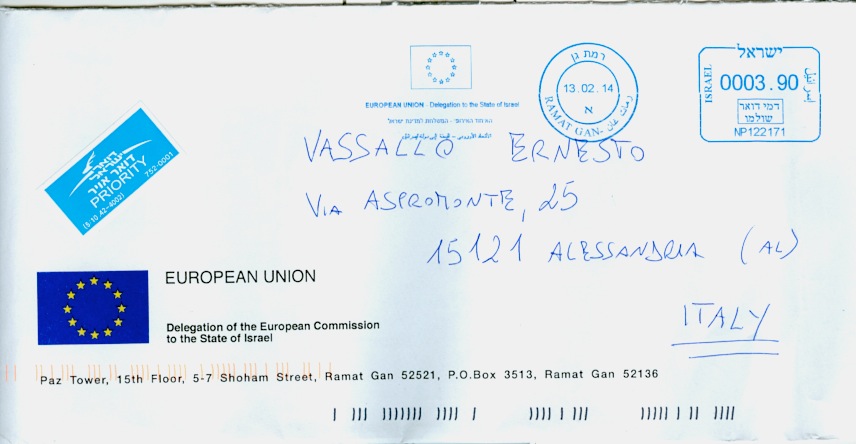 EUROPEAN UNION - Delegation to the State of Israel
האיחוד האירופי - המשלחת למדינת ישראל
רמת גן
13.02.14
א
RAMAT GAN-
رمات غان
ישראל
ISRAEL
إسرائيل
0003.90
דמי דואר
שולמו
NP122171
דואר
ישראל
דואר אויר
PRIORITY
752-0001
VASSALLO ERNESTO
VIA ASPROMONTE, 25
15121 ALESSANDRIA (AL)
ITALY
EUROPEAN UNION
Delegation of the European Commission
to the State of Israel
Paz Tower, 15th Floor, 5-7 Shoham Street, Ramat Gan 52521, P.O.Box 3513, Ramat Gan 52136